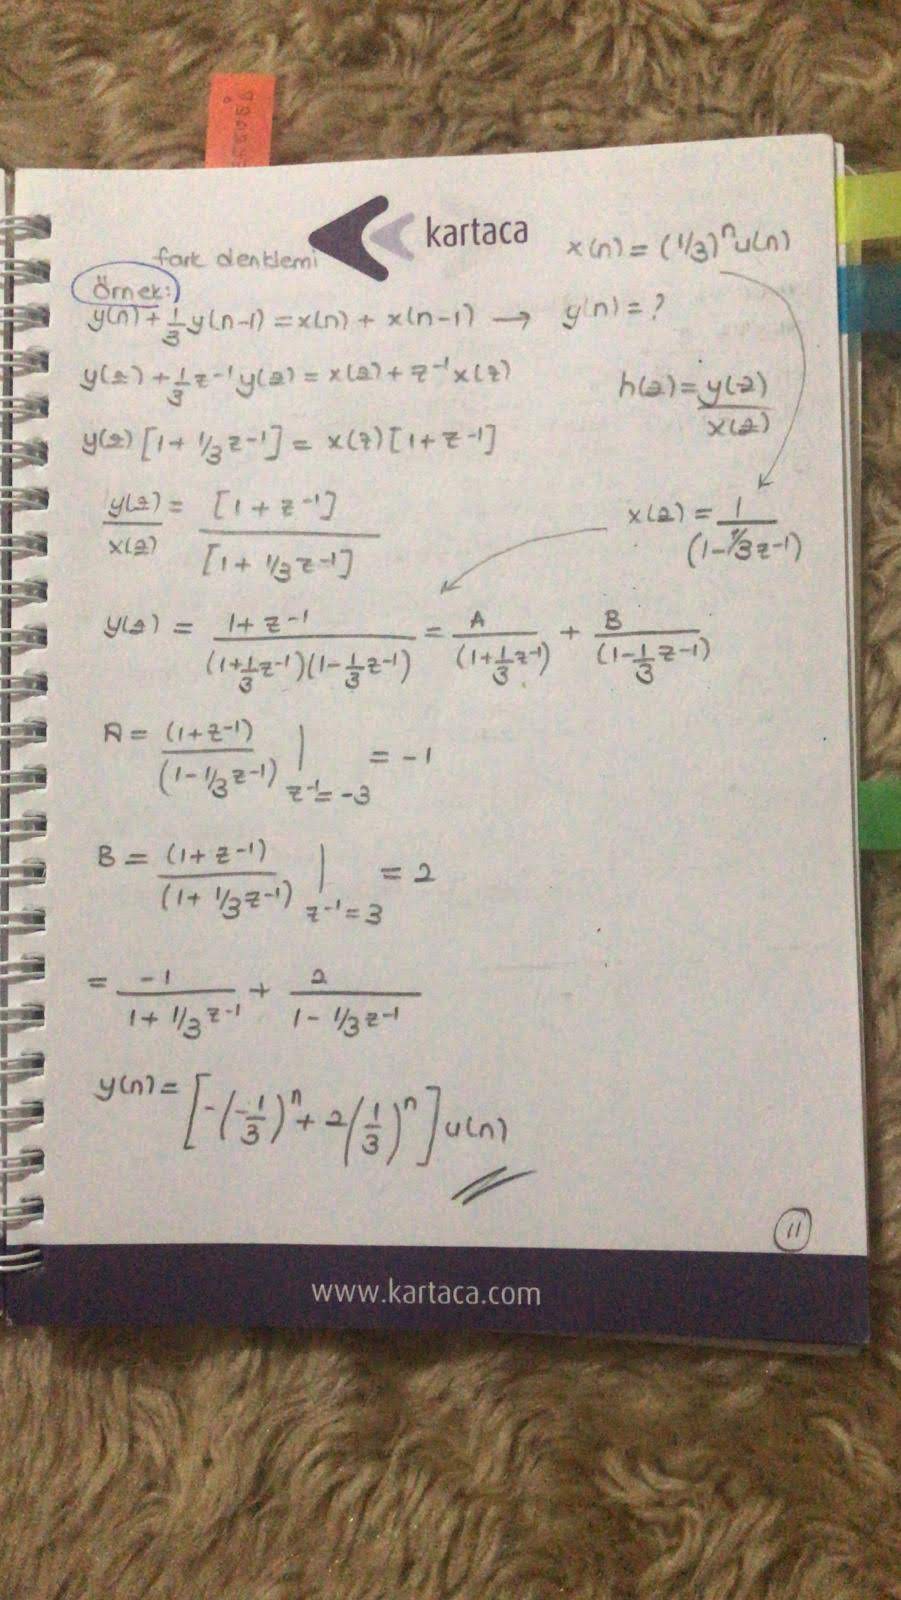 kartaca
x(n) = (1/3)^n u(n)
fark denklemi
Örnek:
y(n) + 1/3 y(n-1) = x(n) + x(n-1) → y(n) = ?
y(z) + 1/3 z^-1 y(z) = x(z) + z^-1 x(z)
h(z) = y(z) / x(z)
y(z) [1 + 1/3 z^-1] = x(z) [1 + z^-1]
y(z) / x(z) = [1 + z^-1] / [1 + 1/3 z^-1]
x(z) = 1 / (1 - 1/3 z^-1)
y(z) = 1 + z^-1 / (1 + 1/3 z^-1)(1 - 1/3 z^-1) = A / (1 + 1/3 z^-1) + B / (1 - 1/3 z^-1)
A = (1 + z^-1) / (1 - 1/3 z^-1) | z^-1 = -3 = -1
B = (1 + z^-1) / (1 + 1/3 z^-1) | z^-1 = 3 = 2
= -1 / 1 + 1/3 z^-1 + 2 / 1 - 1/3 z^-1
y(n) = [-(-1/3)^n + 2(1/3)^n] u(n)
11
www.kartaca.com